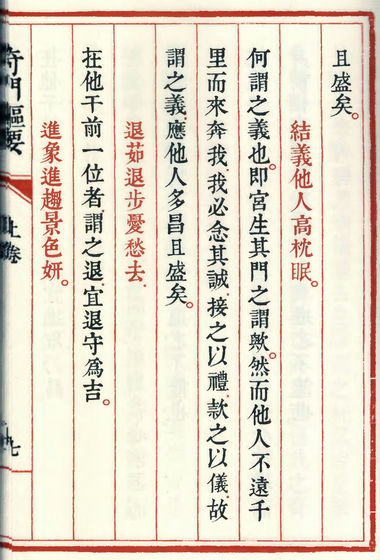 且盛矣。
結義他人高枕眠。
何謂之義也。即宮生其門之謂歟。然而他人不遠千
里而來奔我。我必念其誠。接之以禮。款之以儀。故
謂之義。應他人多昌且盛矣。
退茹退步憂愁去。
在他干前一位者。謂之退。宜退守為吉。
進象進趨景色妍。
奇門樞要
上卷